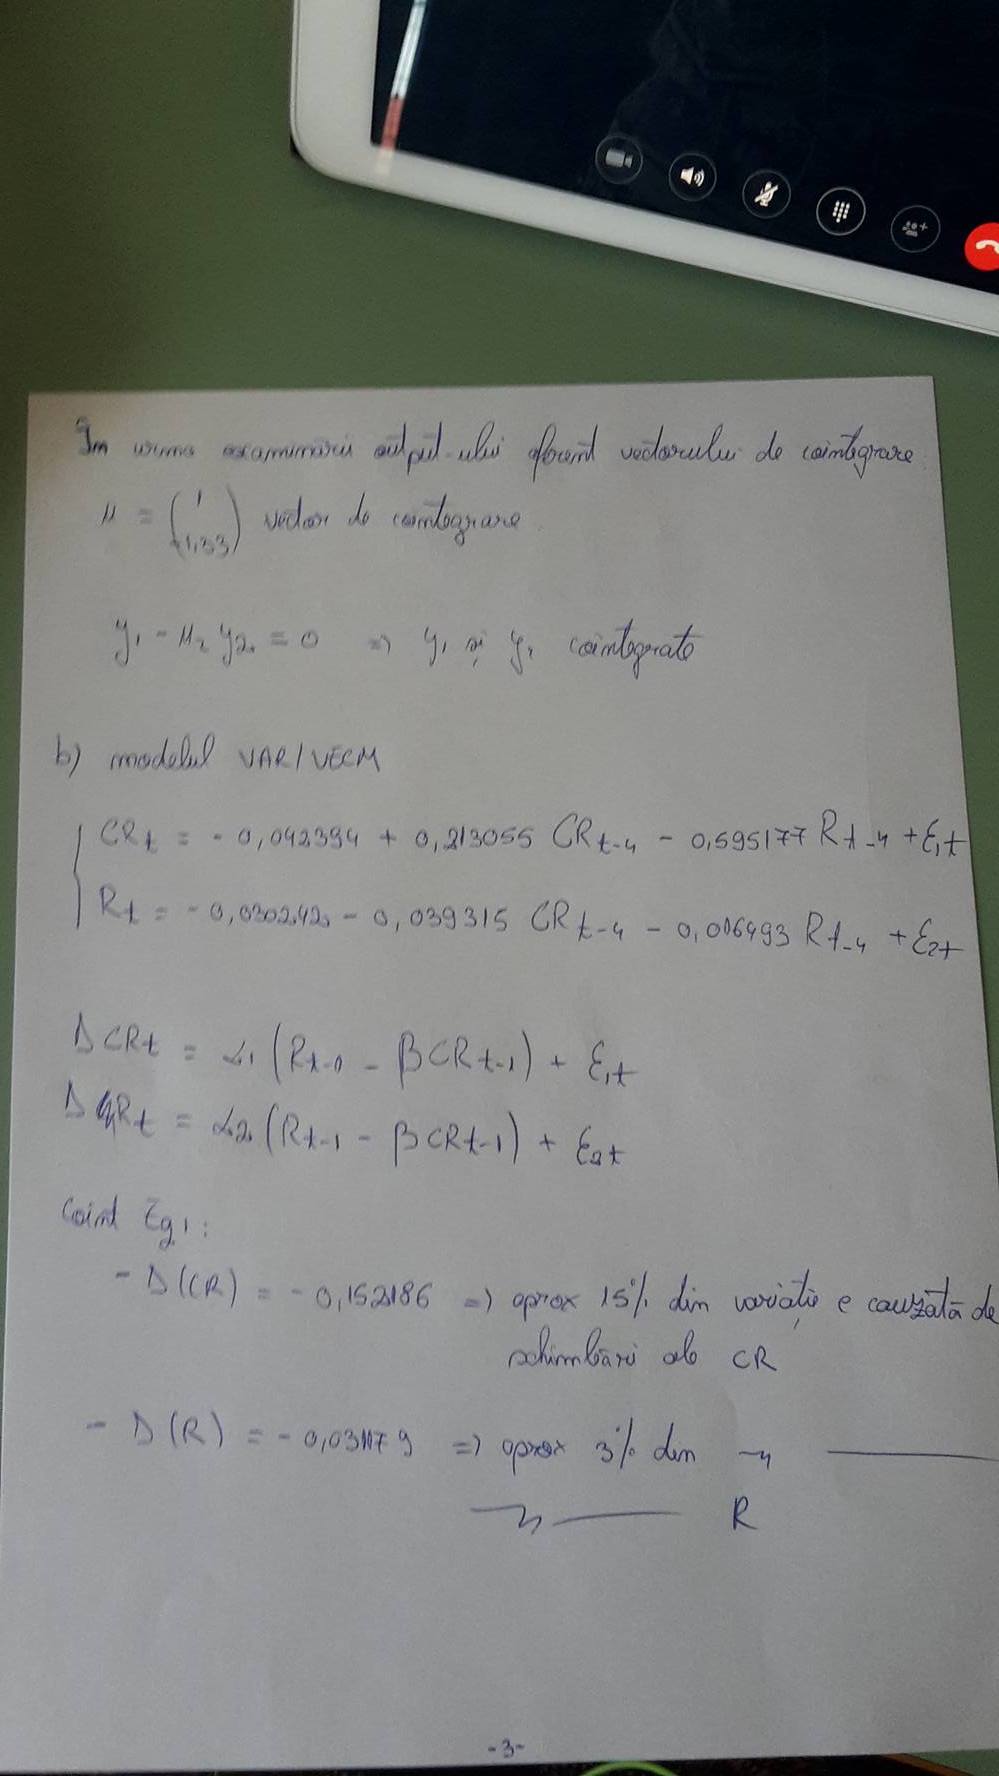 În urma examinării output-ului aferent vectorului de cointegrare
μ = ( 1 1,33 ) vector de cointegrare
y1 - μ2 y2 = 0 => y1 și y2 cointegrate
b) modelul VAR/VECM
CRt = - 0,042394 + 0,213055 CRt-4 - 0,595177 Rt-4 + ε1t
Rt = - 0,030242 - 0,039315 CRt-4 - 0,006493 Rt-4 + ε2t
Δ CRt = α1 (Rt-1 - β CRt-1) + ε1t
Δ Rt = α2 (Rt-1 - β CRt-1) + ε2t
Coint Eq1:
- D(CR) = - 0,152186 => aprox 15% din variație e cauzată de
schimbări ale CR
- D(R) = - 0,031179 => aprox 3% din -"-
-"- R
-3-